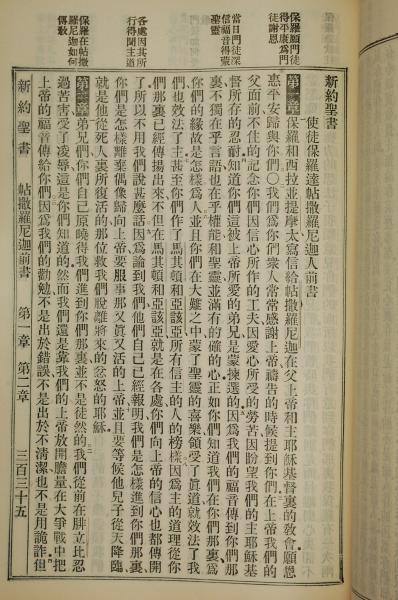 保羅願門徒
得平康爲門
徒謝恩
當日門徒深
信福音得蒙
聖靈
各處因其所
行得聞主道
保羅在帖撒
羅尼迦如何
傳教
新約聖書
使徒保羅達帖撒羅尼迦人前書
第一章 保羅和西拉並提摩太寫信給帖撒羅尼迦在父上帝和主耶穌基督裏的教會願恩
惠平安歸與你們○我們爲你們衆人常常感謝上帝禱告的時候提到你們在上帝我們的
父面前不住的記念你們因信心所作的工夫因愛心所受的勞苦因盼望我們的主耶穌基
督所存的忍耐知道你們這被上帝所愛的弟兄是蒙揀選的因爲我們的福音傳到你們那
裏不獨在乎言語也在乎權能和聖靈並滿有的確的心正如你們知道我們在你們那裏爲
你們的緣故是怎樣爲人並且你們在大難之中蒙了聖靈的喜樂領受了眞道就效法了我
們也效法了主甚至你們作了馬其頓和亞該亞所有信主的人的榜樣因爲主的道理從你
們那裏已經傳揚出來不但在馬其頓和亞該亞就是在各處你們向上帝的信心也都傳開
了所以不用我們說甚麼話因爲論到我們他們自己已經報明我們是怎樣進到你們那裏
你們是怎樣離棄偶像歸向上帝要服事那又眞又活的上帝並且要等候他兒子從天降臨
就是他從死人裏所復活的那位救我們脫離將來的忿怒的耶穌
第二章 弟兄們你們自己原曉得我們進到你們那裏並不是徒然的我們從前在腓立比忍
過苦害受了凌辱這是你們知道的然而我們還是靠我們的上帝放開膽量在大爭戰中把
上帝的福音傳給你們因爲我們的勸勉不是出於錯誤不是出於不清潔也不是用詭詐但
新約聖書 帖撒羅尼迦前書 第一章 第二章 三百三十五